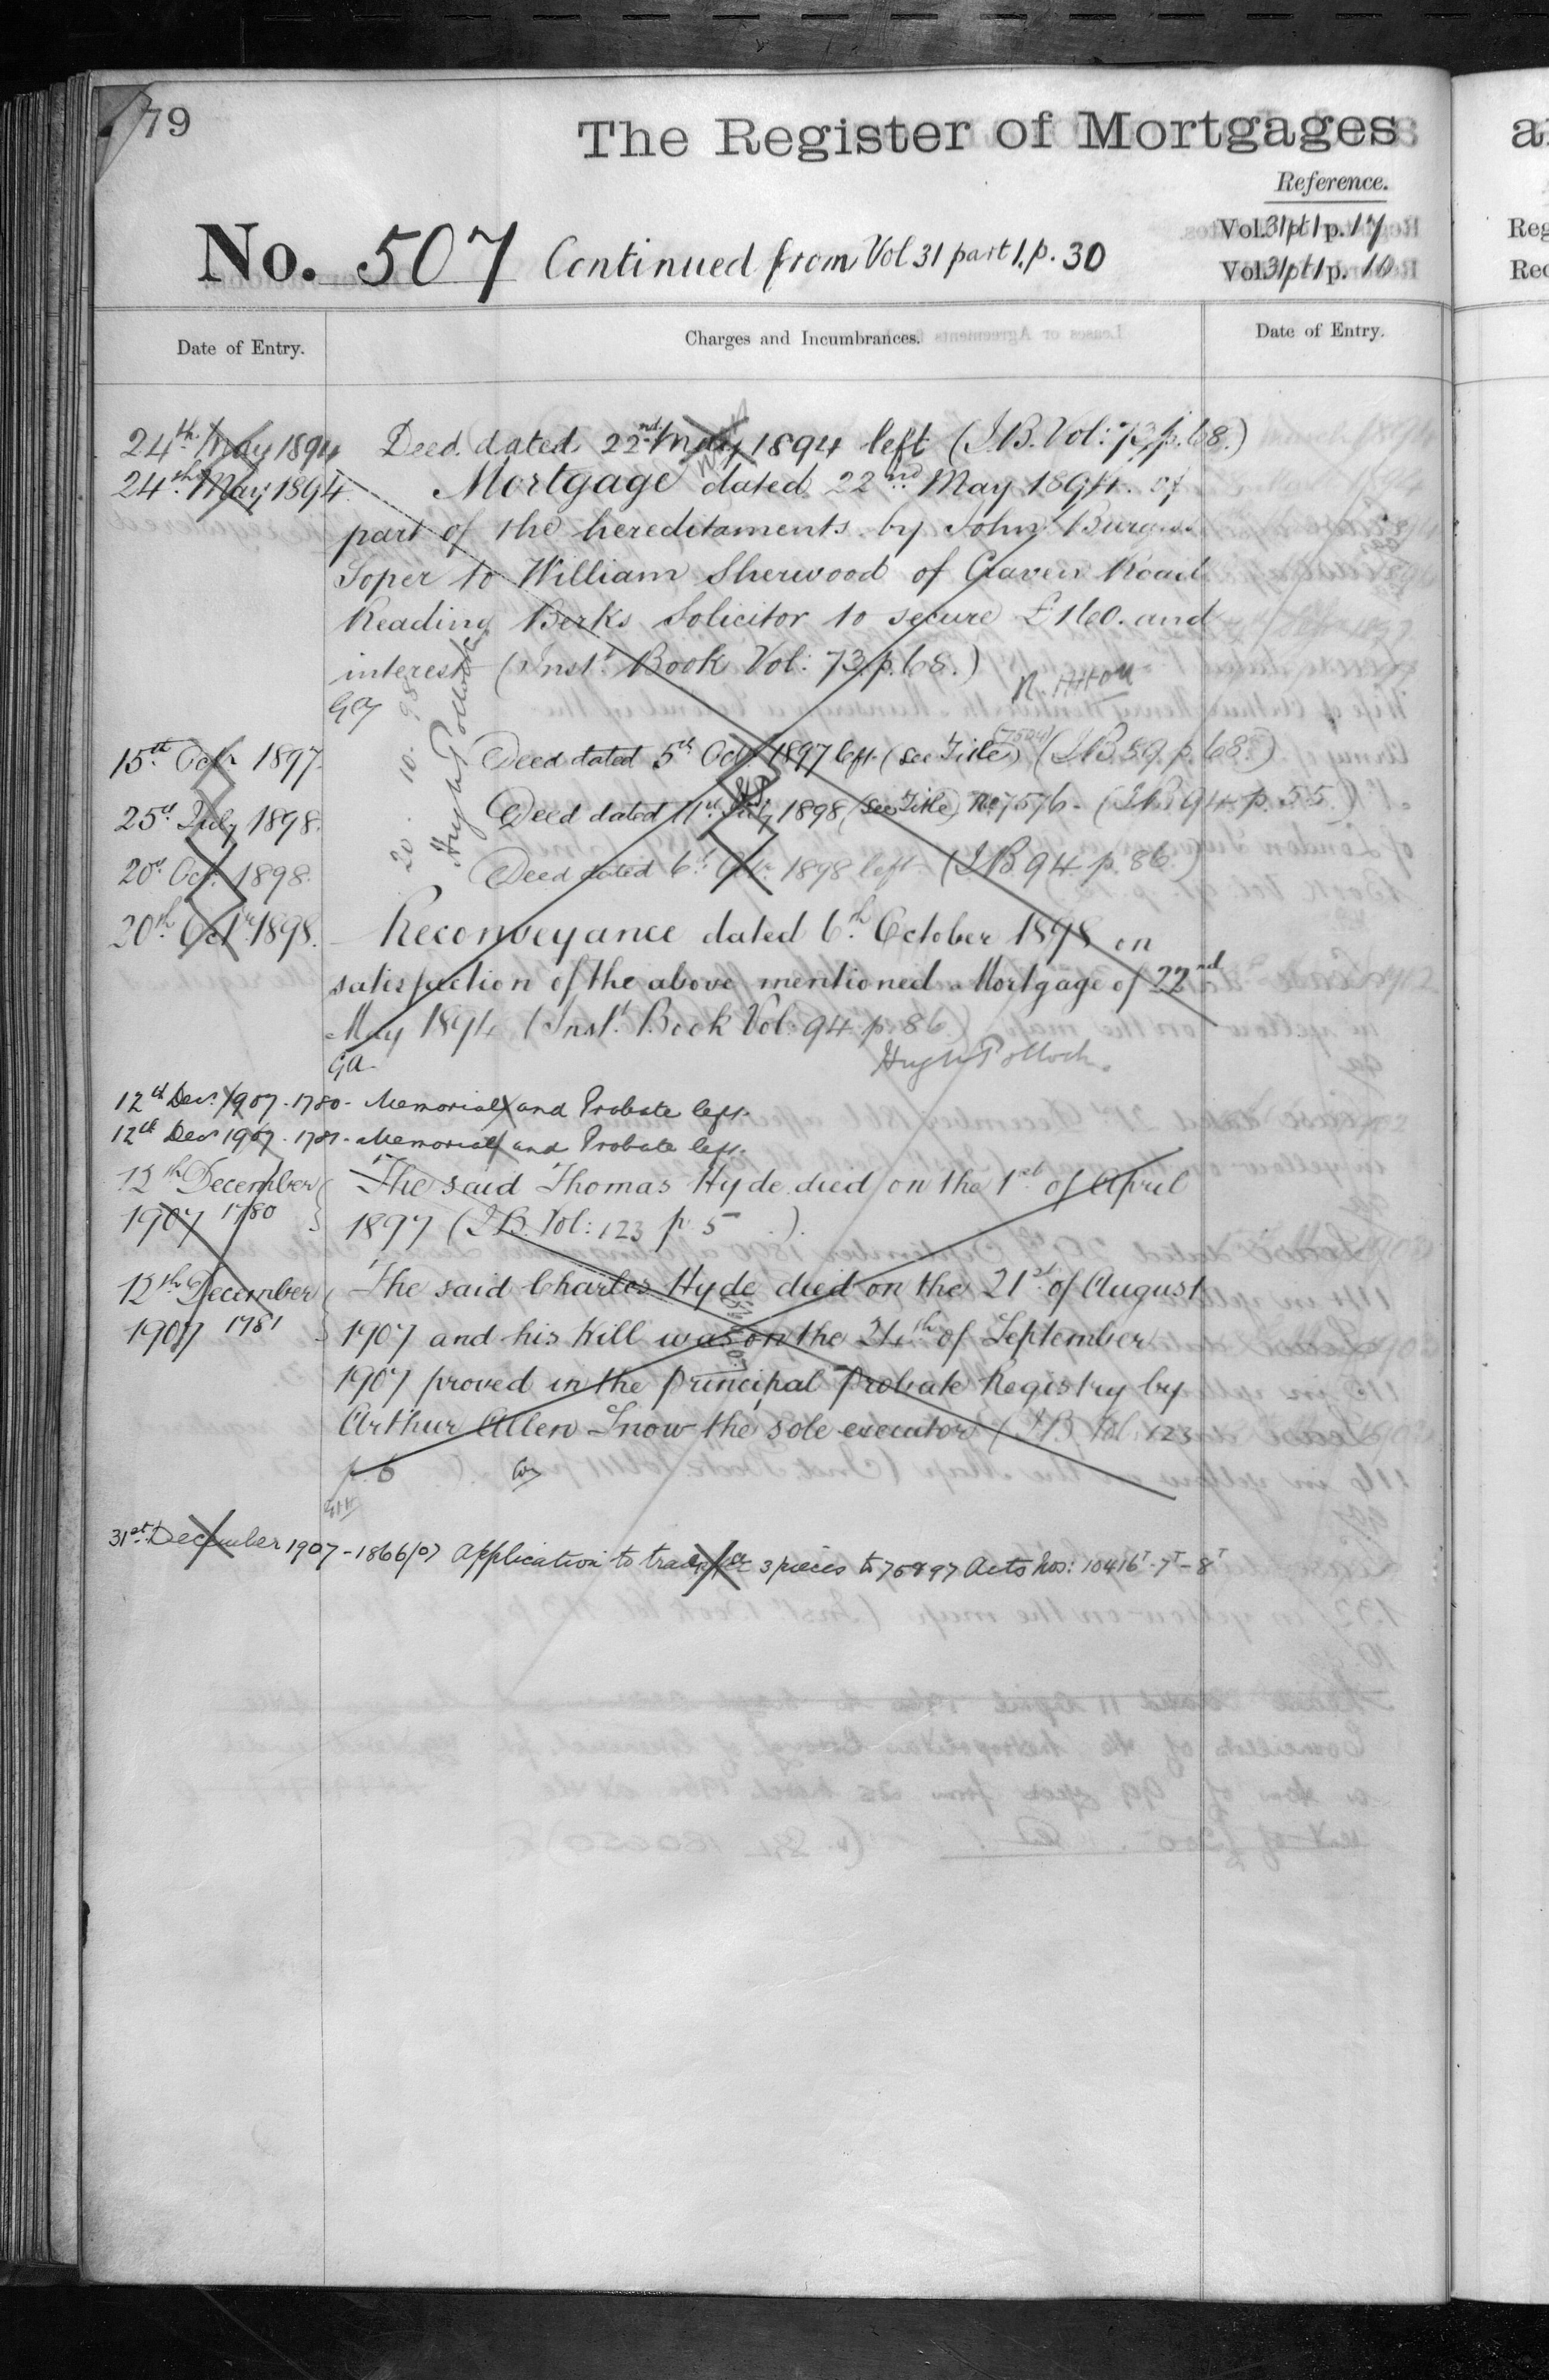 79
The Register of Mortgages
Reference.
No. 507 Continued from Vol 31 part 1. p. 30
Vol. 31 pt 1 p. 17
Vol. 31 pt 1 p. 10
Date of Entry.
Charges and Incumbrances.
Date of Entry.
24th May 1894 Deed dated 22nd May 1894 left (I.B. Vol: 73 p. 68.)
24th May 1894. Mortgage dated 22nd May 1894. of
part of the hereditaments by John
Soper to William Sherwood of Craven Road
Reading Berks Solicitor to secure £160. and
interest (Inst. Book Vol: 73. p. 68.)
15th Octr 1897. Deed dated 5th Octr 1897 left (See Title) (I.B. 89 p. 68.)
25th July 1898. Deed dated 11th July 1898 (See Title) No. 7576 - (I.B. 94 p. 55.)
20th Oct. 1898. Deed dated 6th Octr. 1898 left (I.B. 94 p. 86.)
20th Octr. 1898. Reconveyance dated 6th October 1898 on
satisfaction of the above mentioned Mortgage of 22nd
May 1894 (Inst. Book Vol. 94 p. 86)
Ga.
Hugh Pollock.
20. 10. 98
Hugh Pollock
12th Decr. 1907 - 1780 - Memorial and Probate left.
12th Decr 1907 - 1781 - Memorial and Probate left.
12th December The said Thomas Hyde died on the 1st of April
1907 1780 1897 (I.B. Vol: 123 p. 5 ).
12th December The said Charles Hyde died on the 21st of August
1907 1781 1907 and his Will was on the 24th of September
1907 proved in the Principal Probate Registry by
Arthur Allen Snow the sole executor (I.B. Vol. 123
p. 6
31st December 1907 - 1866/07 Application to transfer 3 pieces to 75897 Acts Nos: 10416T - 7T - 8T